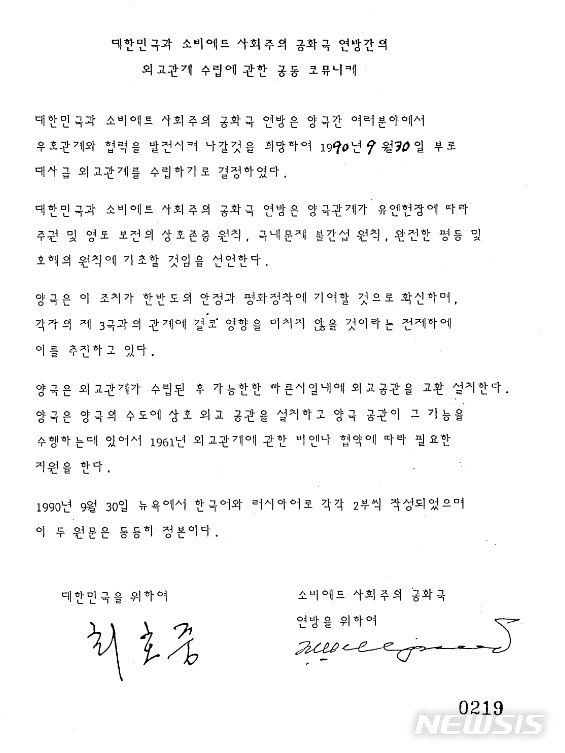 대한민국과 소비에트 사회주의 공화국 연방간의
외교관계 수립에 관한 공동 코뮤니케
대한민국과 소비에트 사회주의 공화국 연방은 양국간 여러분야에서
우호관계와 협력을 발전시켜 나갈것을 희망하여 1990년 9월 30일 부로
대사급 외교관계를 수립하기로 결정하였다.
대한민국과 소비에트 사회주의 공화국 연방은 양국관계가 유엔헌장에 따라
주권 및 영토 보전의 상호존중 원칙, 국내문제 불간섭 원칙, 완전한 평등 및
호혜의 원칙에 기초할 것임을 선언한다.
양국은 이 조치가 한반도의 안정과 평화정착에 기여할 것으로 확신하며,
각자의 제 3국과의 관계에 결코 영향을 미치지 않을 것이라는 전제하에
이를 추진하고 있다.
양국은 외교관계가 수립된 후 가능한한 빠른시일내에 외교공관을 교환 설치한다.
양국은 양국의 수도에 상호 외교 공관을 설치하고 양국 공관이 그 기능을
수행하는데 있어서 1961년 외교관계에 관한 비엔나 협약에 따라 필요한
지원을 한다.
1990년 9월 30일 뉴욕에서 한국어와 러시아어로 각각 2부씩 작성되었으며
이 두 원문은 동등히 정본이다.
대한민국을 위하여
최호중
소비에트 사회주의 공화국
연방을 위하여
0219
NEWSIS